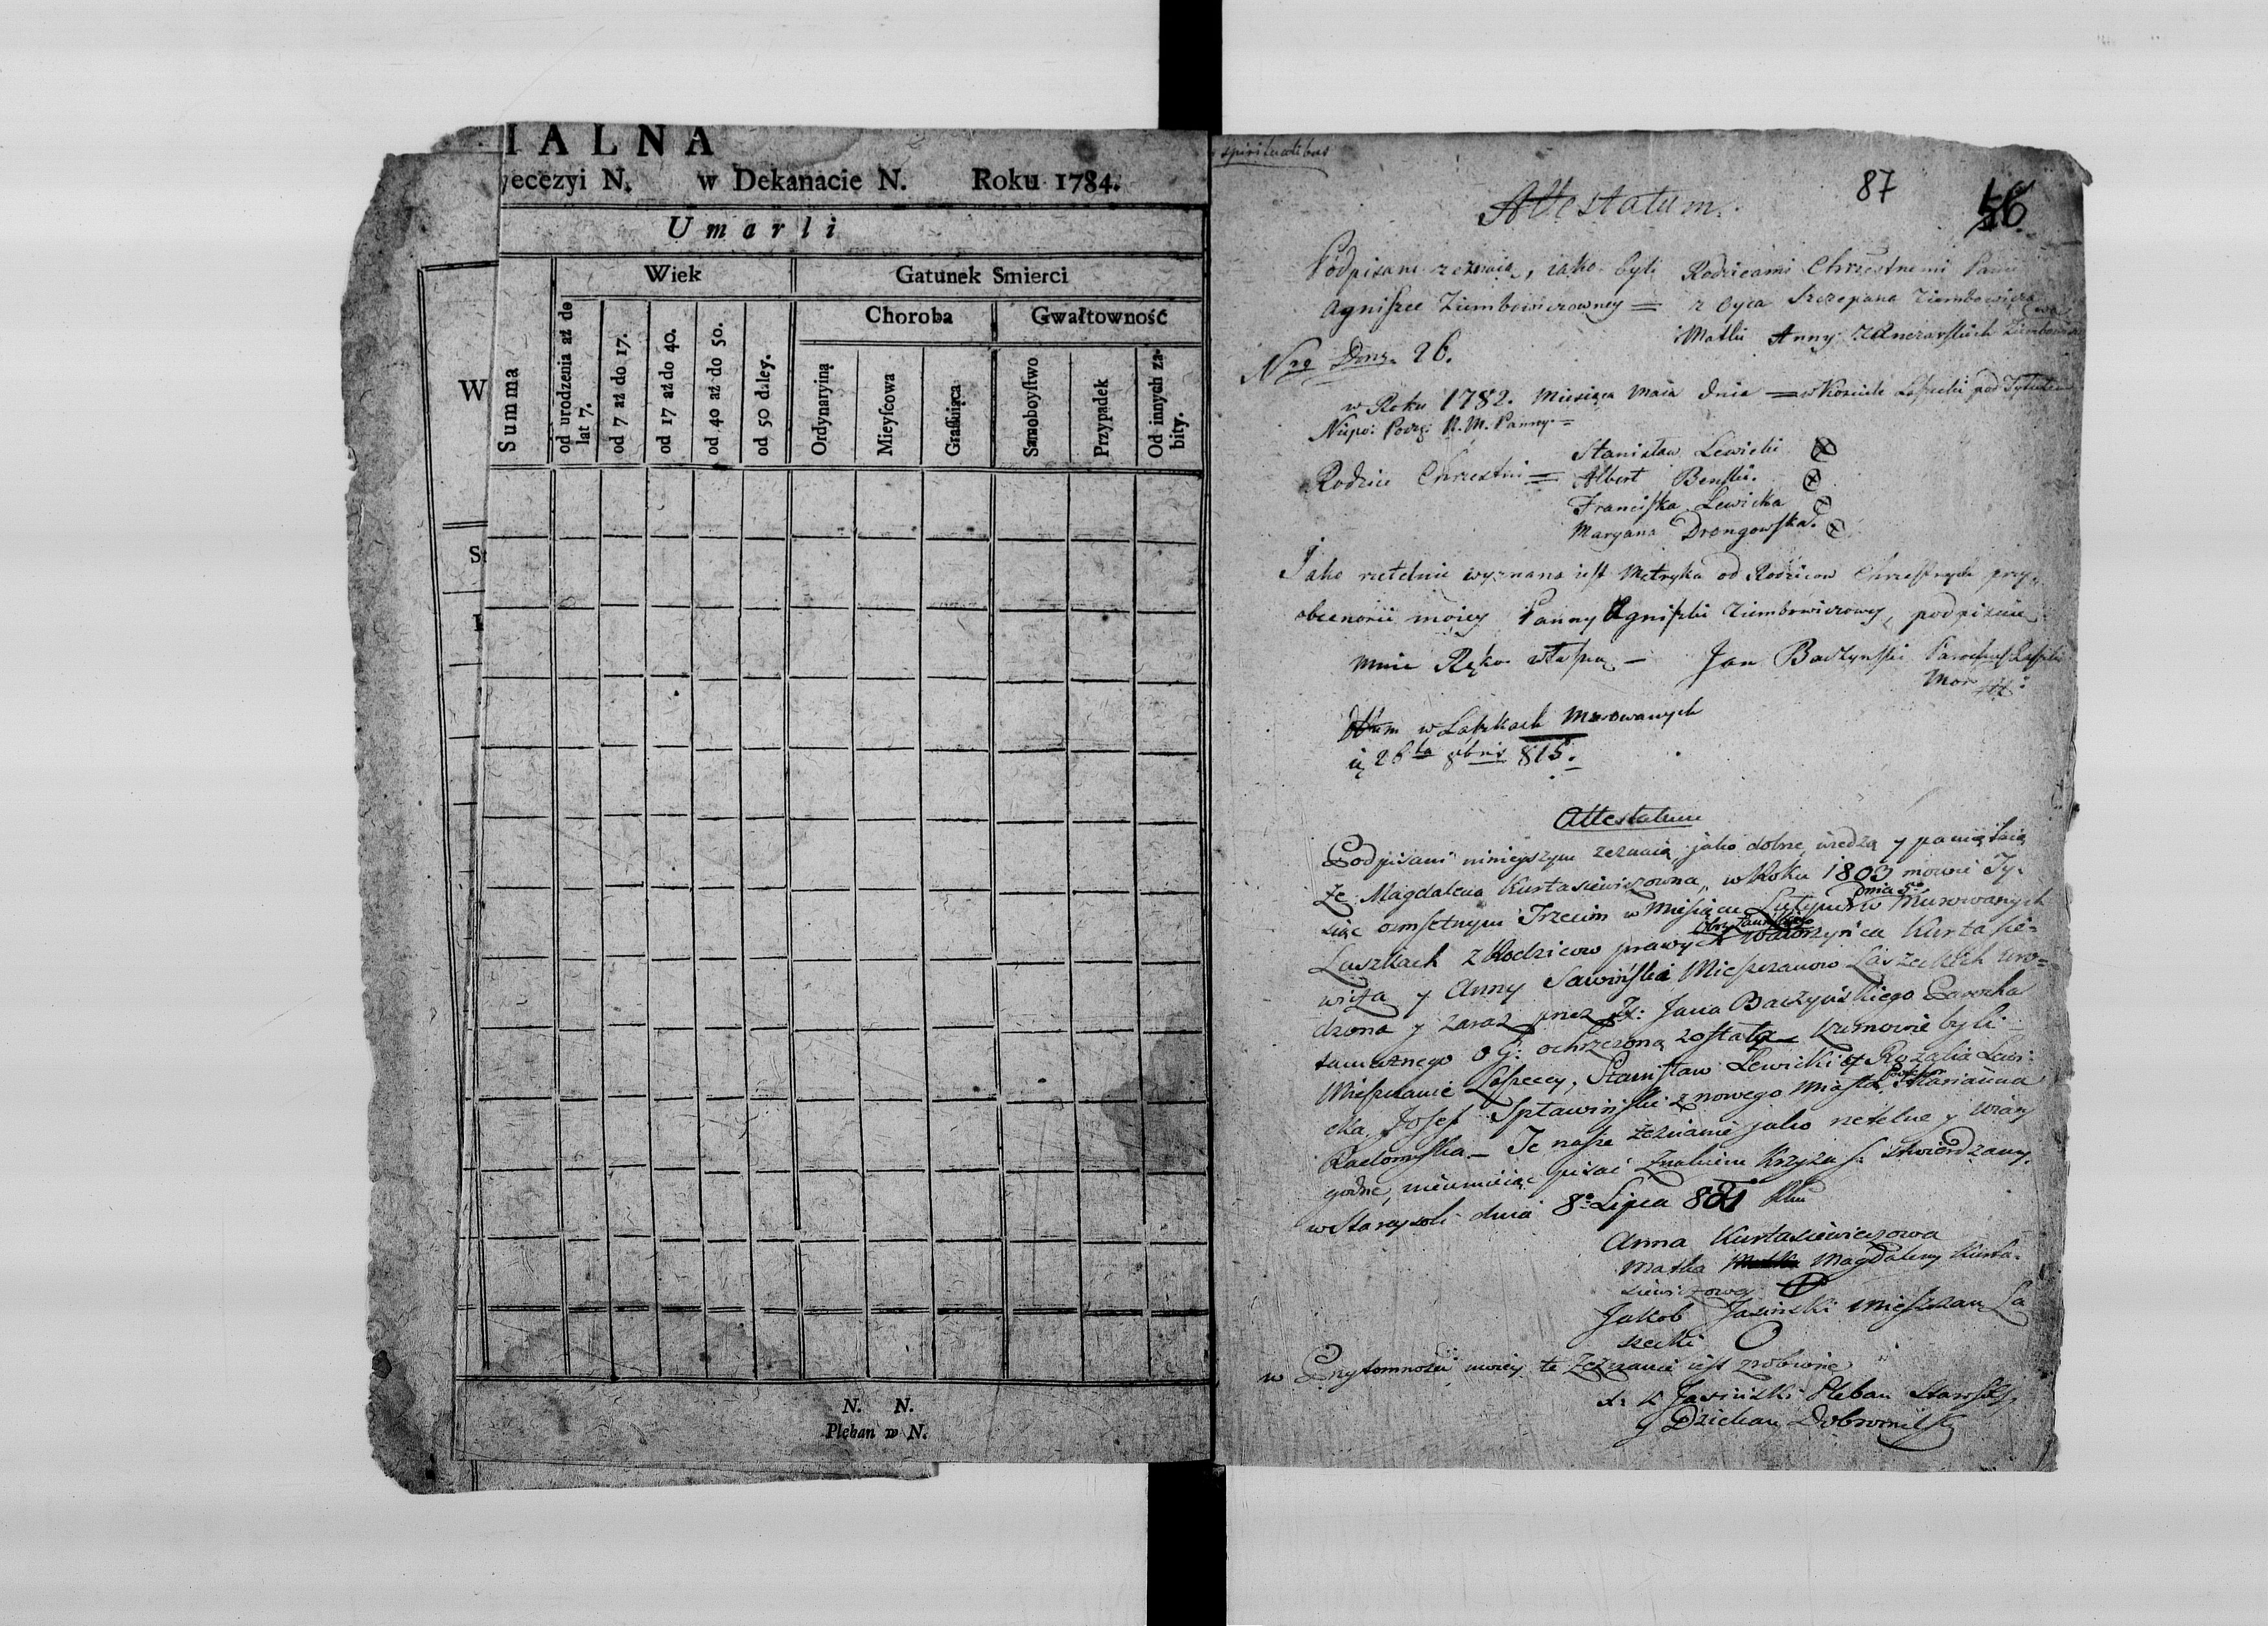 IALNA
yecezyi N. w Dekanacie N. Roku 1784.
Umarli
Wiek
Gatunek Smierci
Choroba
Gwałtowność
W
Summa
od urodzenia aż do lat 7.
od 7 aż do 17.
od 17 aż do 40.
od 40 aż do 50.
od 50 daley.
Ordynaryiną
Mieyscowa
Grassuiąca
Samoboystwo
Przypadek
Od innych zabity.
St
N. N.
Pleban w N.
spiritualibus
87
56
Attestatum.
Podpisani zeznaią, iako byli Rodzicami Chrzestnemi Panie
Agniszce Ziembowiczowney = z Oyca Szczepana Ziembowicza
i Matki Anny
Nro Dom. 26.
w Roku 1782. Miesiąca Maia dnia = w Kosciele Łaszecki pod Tytułem
Niepo: Pocz: N. M. Panny. =
Stanisław Lewicki
Rodzice Chrzestni = Albert Benski.
Franciszka Lewicka
Maryana Drongowska.
Jako rzetelnie wyznana iest Metryka od Rodzicow Chrzestnych przy
obecności moiey Panny Agniszki Ziembowiczowey, podpisuie
mnie Ręko własną – Jan Baczynski Parochus
Mor
Dttum w Łaszkach Murowanych
26ta 8bris 815.
Attestatum
Podpisani ninieyszym zeznaią, jako dobrze wiedzą y pamiętaią
że Magdalena Kurtasiewiczowna, w Roku 1803 mowie Ty-
siąc osmsetnym Trzecim w Miesiącu Lutym dnia 5º w Murowanych
Laszkach z Rodzicow prawych Kurtasie-
wicza y Anny Sawińskiei Mieszczanow Łaszeckich uro=
dzona y zaraz przez X: Jana Baczyńskiego Parocha
tameznego O G: ochrzczoną została Kumowie byli
Mieszczanie Łaszeccy, Stanisław Lewicki y Rozalia Lewi-
cka Josef Spławiński z nowego Miasta, Marianna
Radomyska – Te nasze zeznanie jako rzetelne y wiary
godne, nieumieiąc pisać znakiem Krzyża S: stwierdzamy.
w Starysoli dnia 8º Lipca 821
Anna Kurtasiewiczowa
Matka Magdaleny Kurta-
siewiczowey
Jakob Jasinski mieszczan Ła
szecki
w Przytomności moiey te Zeznanie iest zrobione
X: K Jasinski Pleban Starosol.
y Dziekan Dobromilski